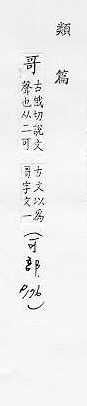 類篇
哥
古俄切說文
聲也从二可
古文以為
謌字文一
(可部.